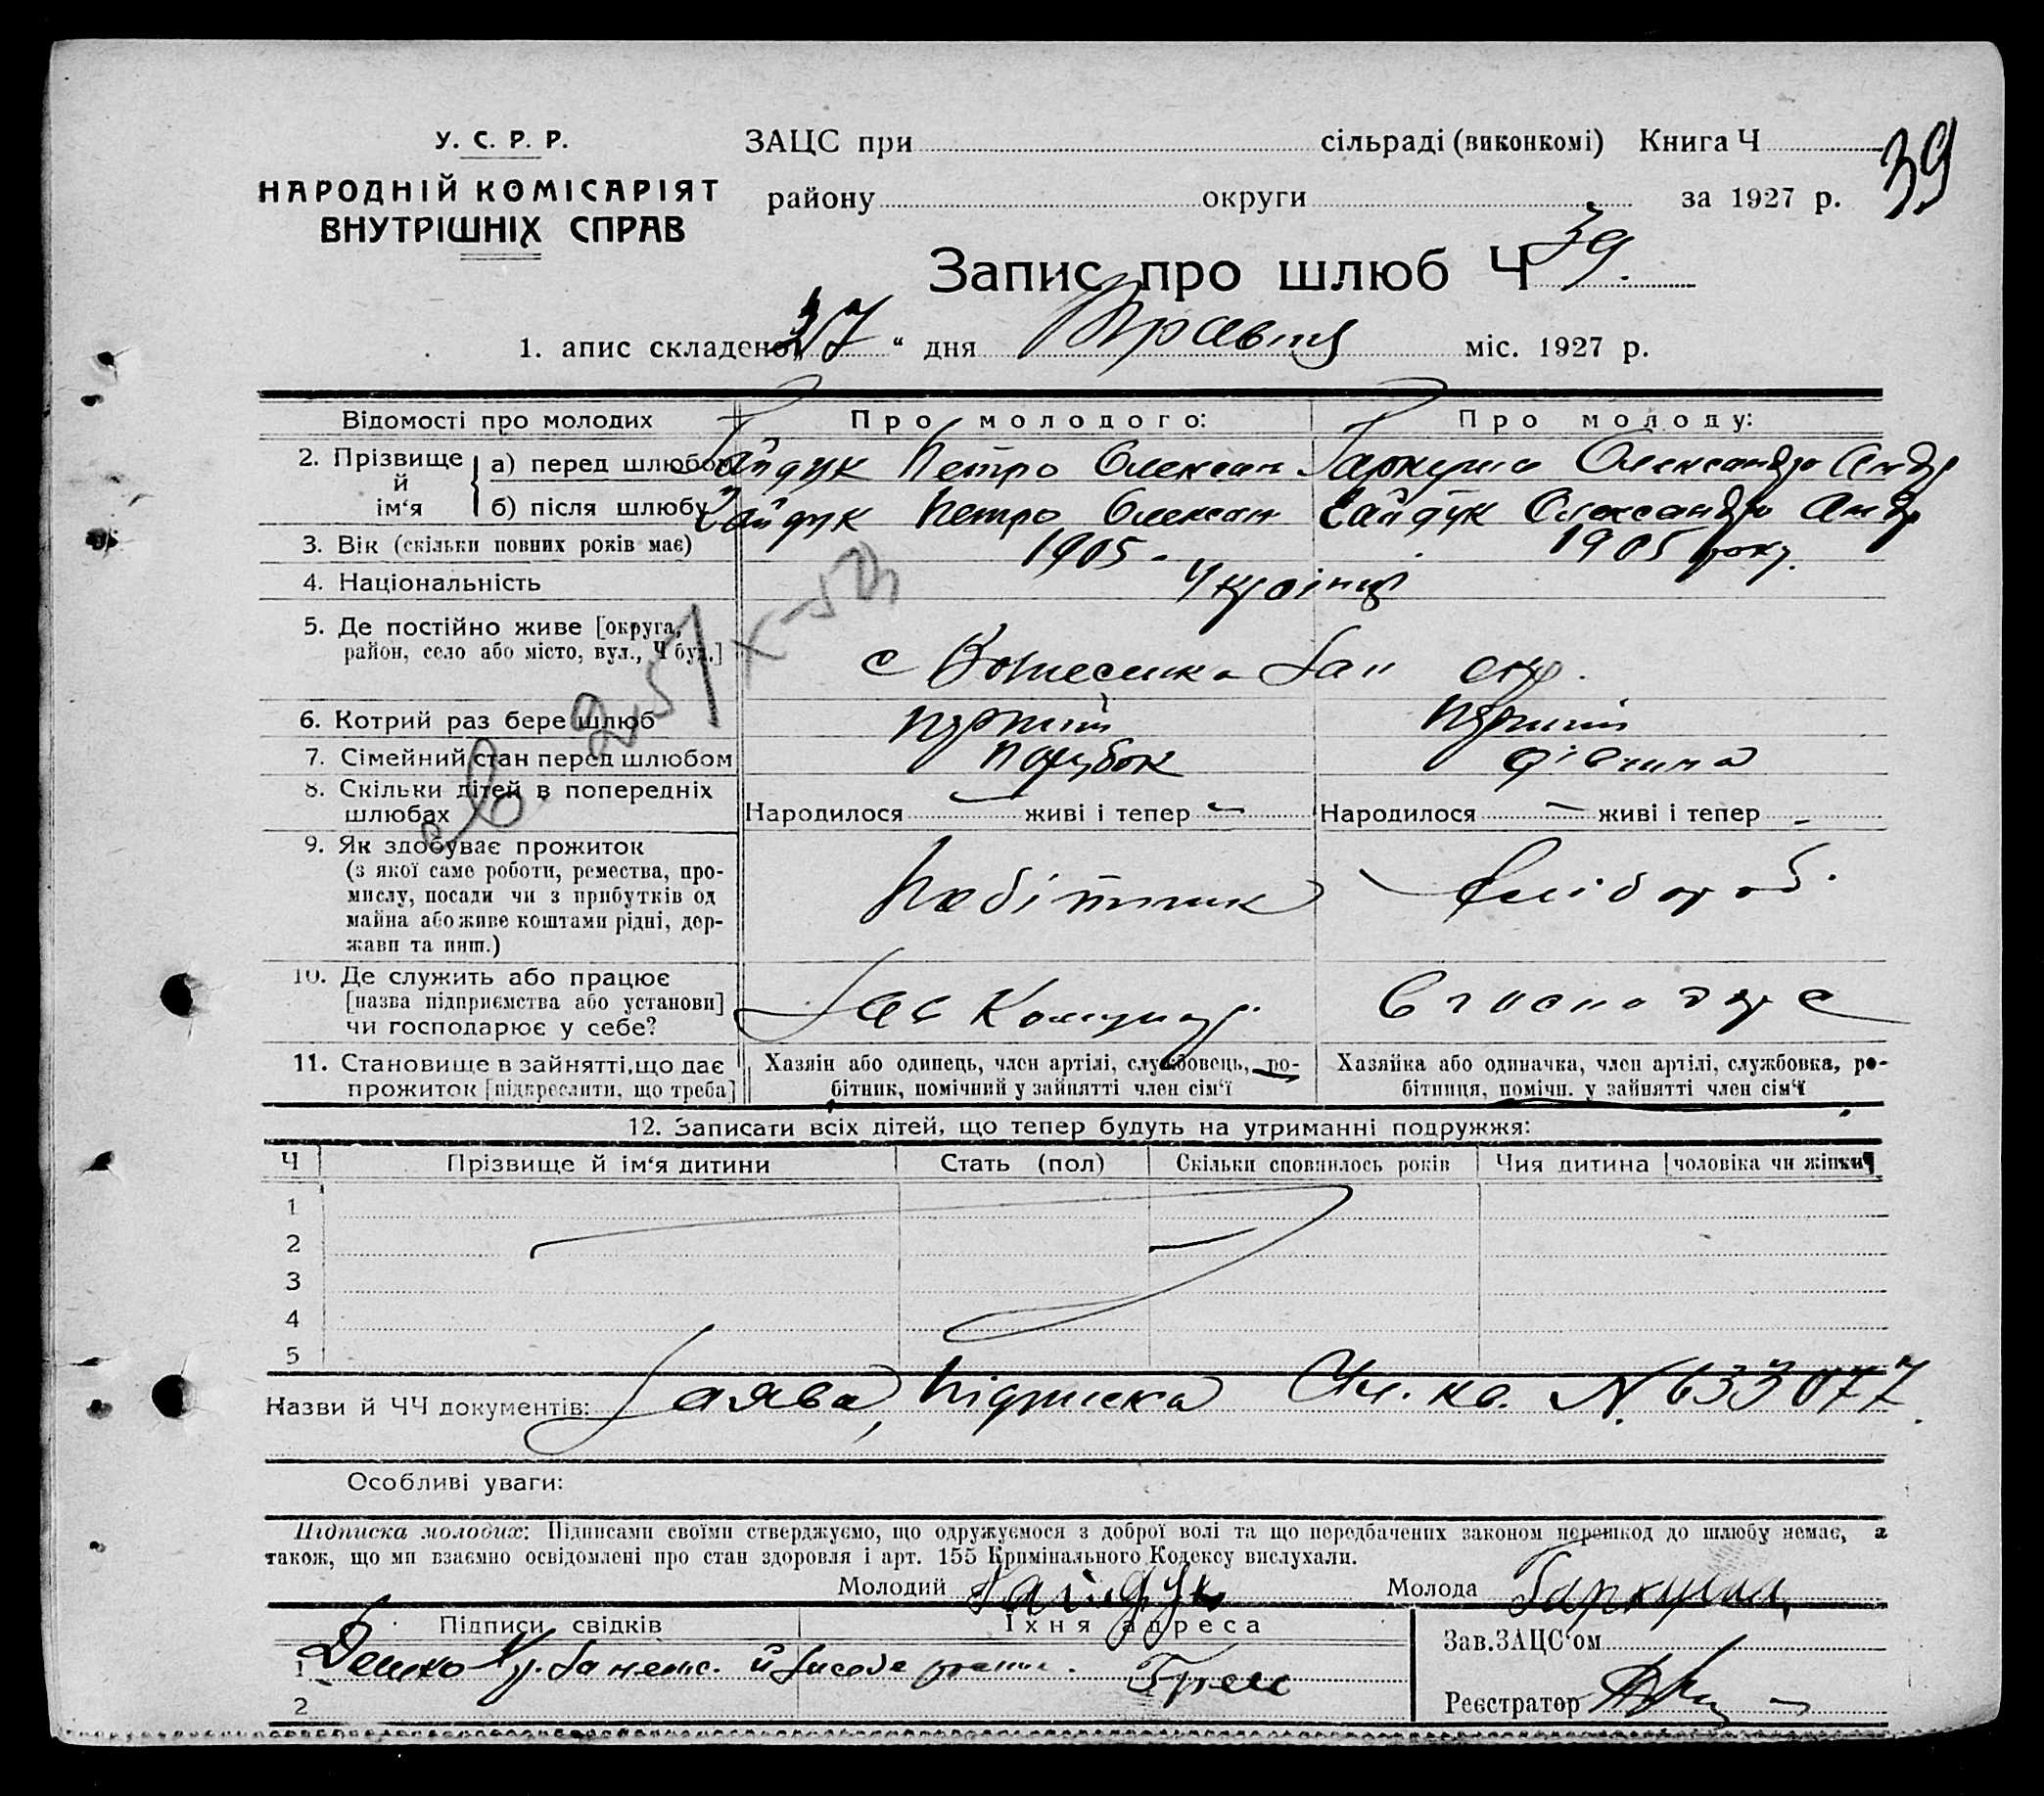 У. С. Р. Р.
НАРОДНІЙ КОМІСАРІЯТ
ВНУТРІШНІХ СПРАВ
ЗАЦС при сільраді (виконкомі) Книга Ч 39
району округи за 1927 р.
Запис про шлюб Ч 39.
1. апис складено „ 27 “ дня Травня міс. 1927 р.
Відомості про молодих Про молодого: Про молоду:
2. Прізвище й ім‘я а) перед шлюбом Гайдук Петро Олексан Гаркуша Олександра Андр
б) після шлюбу Гайдук Петро Олексан Гайдук Олександра Андр
3. Вік (скільки повних років має) 1905. 1905 року.
4. Національність Україньці
5. Де постійно живе [округа,
район, село або місто, вул., Ч буд.] с Вознесенка Зап окр.
6. Котрий раз бере шлюб перший перший
7. Сімейний стан перед шлюбом парубок дівчина
8. Скільки дітей в попередніх
шлюбах Народилося — живі і тепер — Народилося — живі і тепер -
9. Як здобуває прожиток
(з якої саме роботи, ремества, про-
мислу, посади чи з прибутків од
майна або живе коштами рідні, дер-
жави та инш.) Робітник хлібороб.
10. Де служить або працює
[назва підприємства або установи]
чи господарює у себе? Зав Комунар.
11. Становище в зайнятті, що дає
прожиток [підкреслити, що треба]
Хазяїн або одинець, член артілі, службовець, ро-
бітник, помічний у зайнятті член сім‘ї
Хазяйка або одиначка, член артілі, службовка, ро-
бітниця, помічн. у зайнятті член сім‘ї
12. Записати всіх дітей, що тепер будуть на утриманні подружжя:
Ч Прізвище й ім‘я дитини Стать (пол) Скільки сповнилось років Чия дитина [чоловіка чи жінки]
1
2
3
4
5
Назви й ЧЧ документів: Заява, Підписка кв. N. 633077.
Особливі уваги:
Підписка молодих: Підписами своїми стверджуємо, що одружуємося з доброї волі та що передбачених законом перешкод до шлюбу немає, а
також, що ми взаємно освідомлені про стан здоровля і арт. 155 Кримінального Кодексу вислухали.
Молодий Гайдук Молода Гаркуша
Підписи свідків Їхня адреса
Зав. ЗАЦС‘ом
1
2
Реєстратор